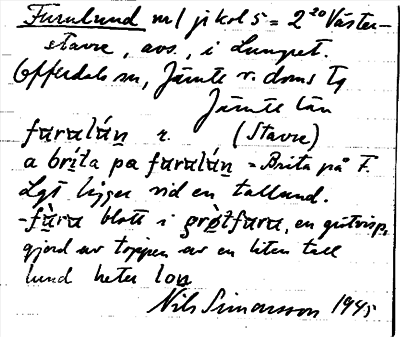 Furulund m/ jikol 5 = 2²⁰ Väster-
stavre, avs., i Lungret.
Offerdals sn, Jämtl. v. doms tg
Jämtl län
fuṟalán r. (Stavre)
a bríta pa fuṟalán = Brita på F.
Lgt ligger vid en tallund.
-fùra blott i grøtfura, en grötvisp,
gjord av toppen av en liten tall
lund heter lon
Nils Simonsson 1945